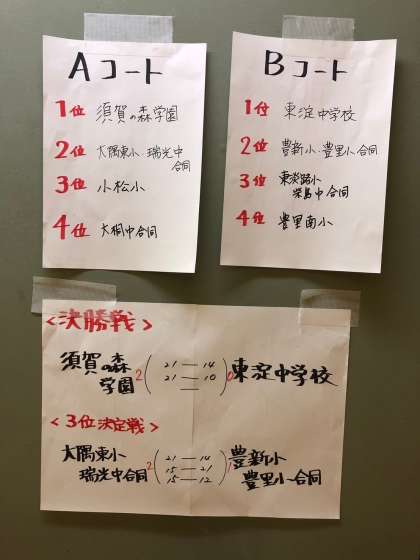 Aコート
1位 須賀の森学園
2位 大隅東小・瑞光中
合同
3位 小松小
4位 大桐中合同
Bコート
1位 東淀中学校
2位 豊新小・豊里小合同
3位 東淡路小
柴島中合同
4位 豊里南小
<決勝戦>
須賀の森
学園 2 ( 21 — 14
21 — 10
— ) 0 東淀中学校
<3位決定戦>
大隅東小
瑞光中合同 2 ( 21 — 14
15 — 21
15 — 12 ) 1 豊新小
豊里小合同